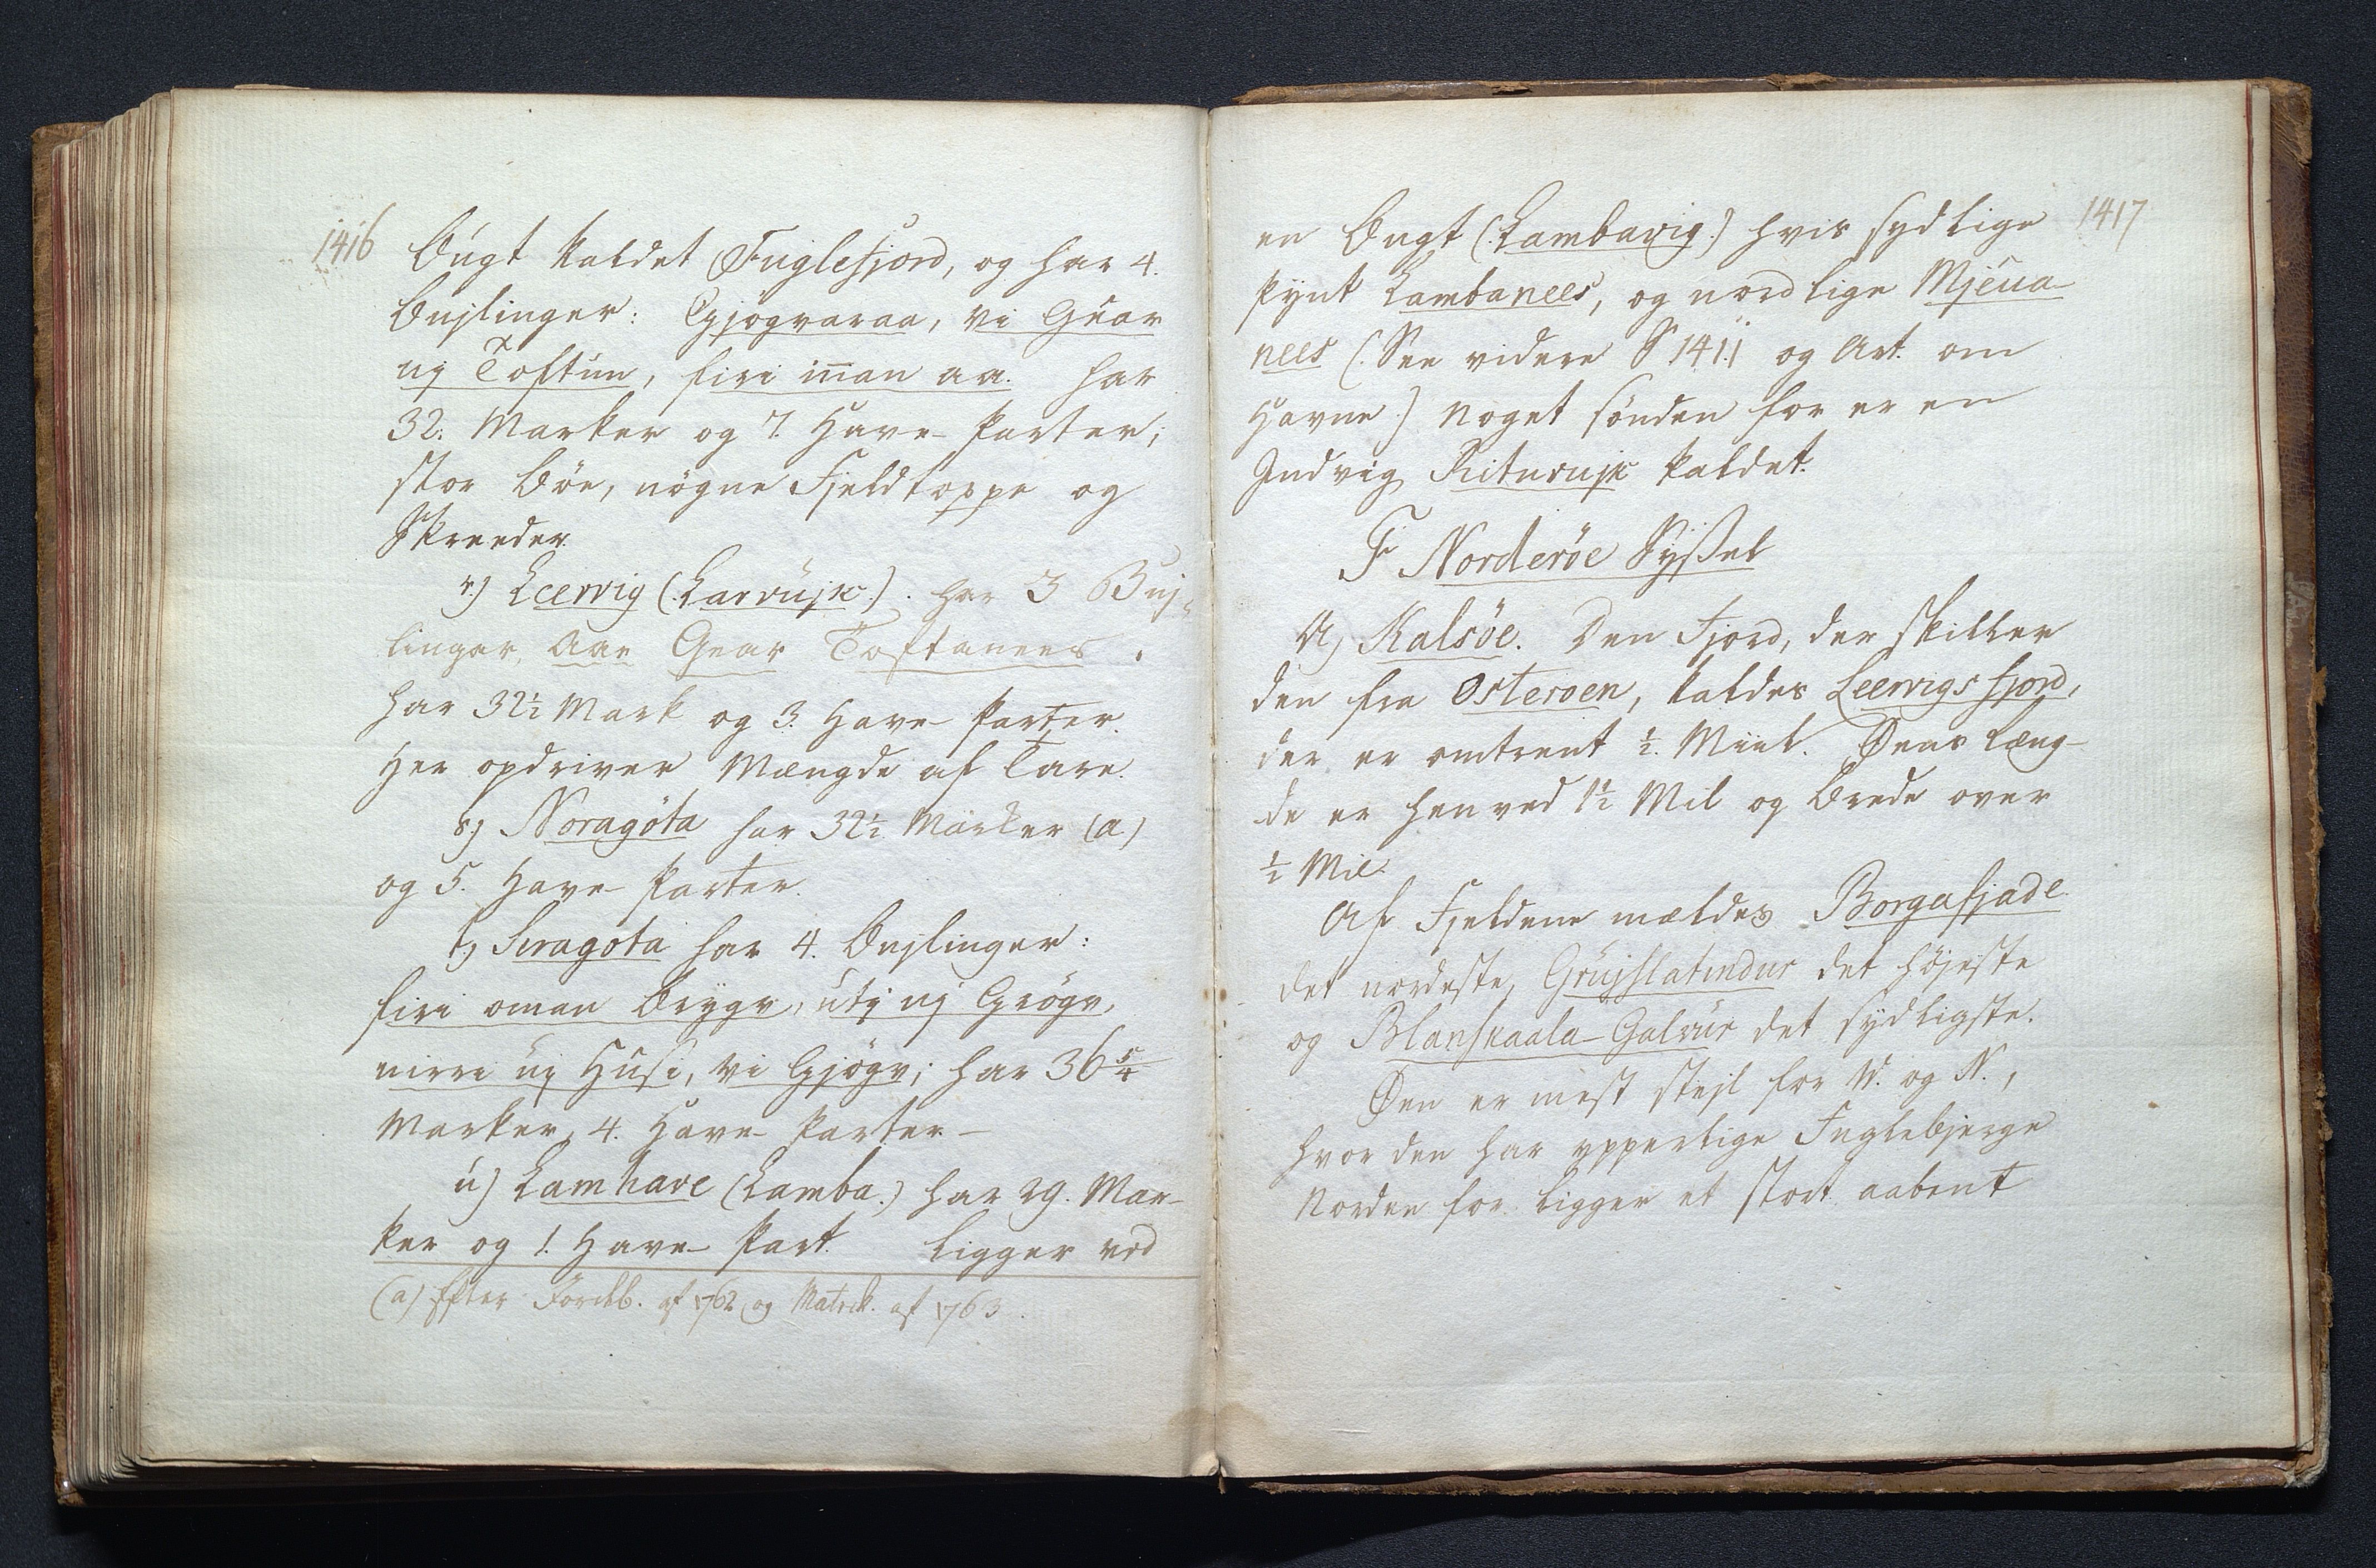 1416
Bugt kaldet Fuglefjord, og har 4.
Bujlinger: Gjøgvaraa, vi Gear
uj Toftun, firi innan aa. har
32. Marker og 7. Have-Parter;
stor Bøe, nögne Fjeldtoppe og
Skreeder.
r.) Leervig (Larvujk.). har 3 Buj-
linger, Aae Gear Toftanees.
har 32½ Mark og 3. Have-Parter.
Her opdriver Mængde af Tare.
s) Noragöta har 32½ Marker (a)
og 5. Have-Parter.
t) Siragota har 4. Bujlinger:
firi oman Brygv, utj uj Grögv,
nirri uj Husi, vi Gjögv; har 36 5/4
Marker, 4. Have-Parter-
u) Lamhave (Lamba.) har 29. Mar-
ker og 1. Have-Part. Ligger ved
(a) Efter Jordeb. af 1762 og Matrik. af 1763.
1417
en Bugt (Lambavig.) hvis sydlige
Pynt Lambanees, og nordlige Mjeua-
nees (See videre S 1411 og Art. om
Havne.) Noget sönden for er en
Indvig Rituvujk kaldet.
F Norderöe Sÿssel
A) Kalsöe. Den Fjord, der skiller
den fra Osteroen, kaldes Leervigsfjord,
der er omtrent ½. Miil. Øens Læng-
de er henved 1½ Mil og Brede over
½ Mil.
Af Fjeldene mældes Borgafjade
det nordeste, Grujslatindur det höjeste
og Blanskaala-Galvur det sydligste.
Øen er mest stejl for W. og N.,
hvor den har ypperlige Fuglebjerge
Norden for ligger et stort aabent